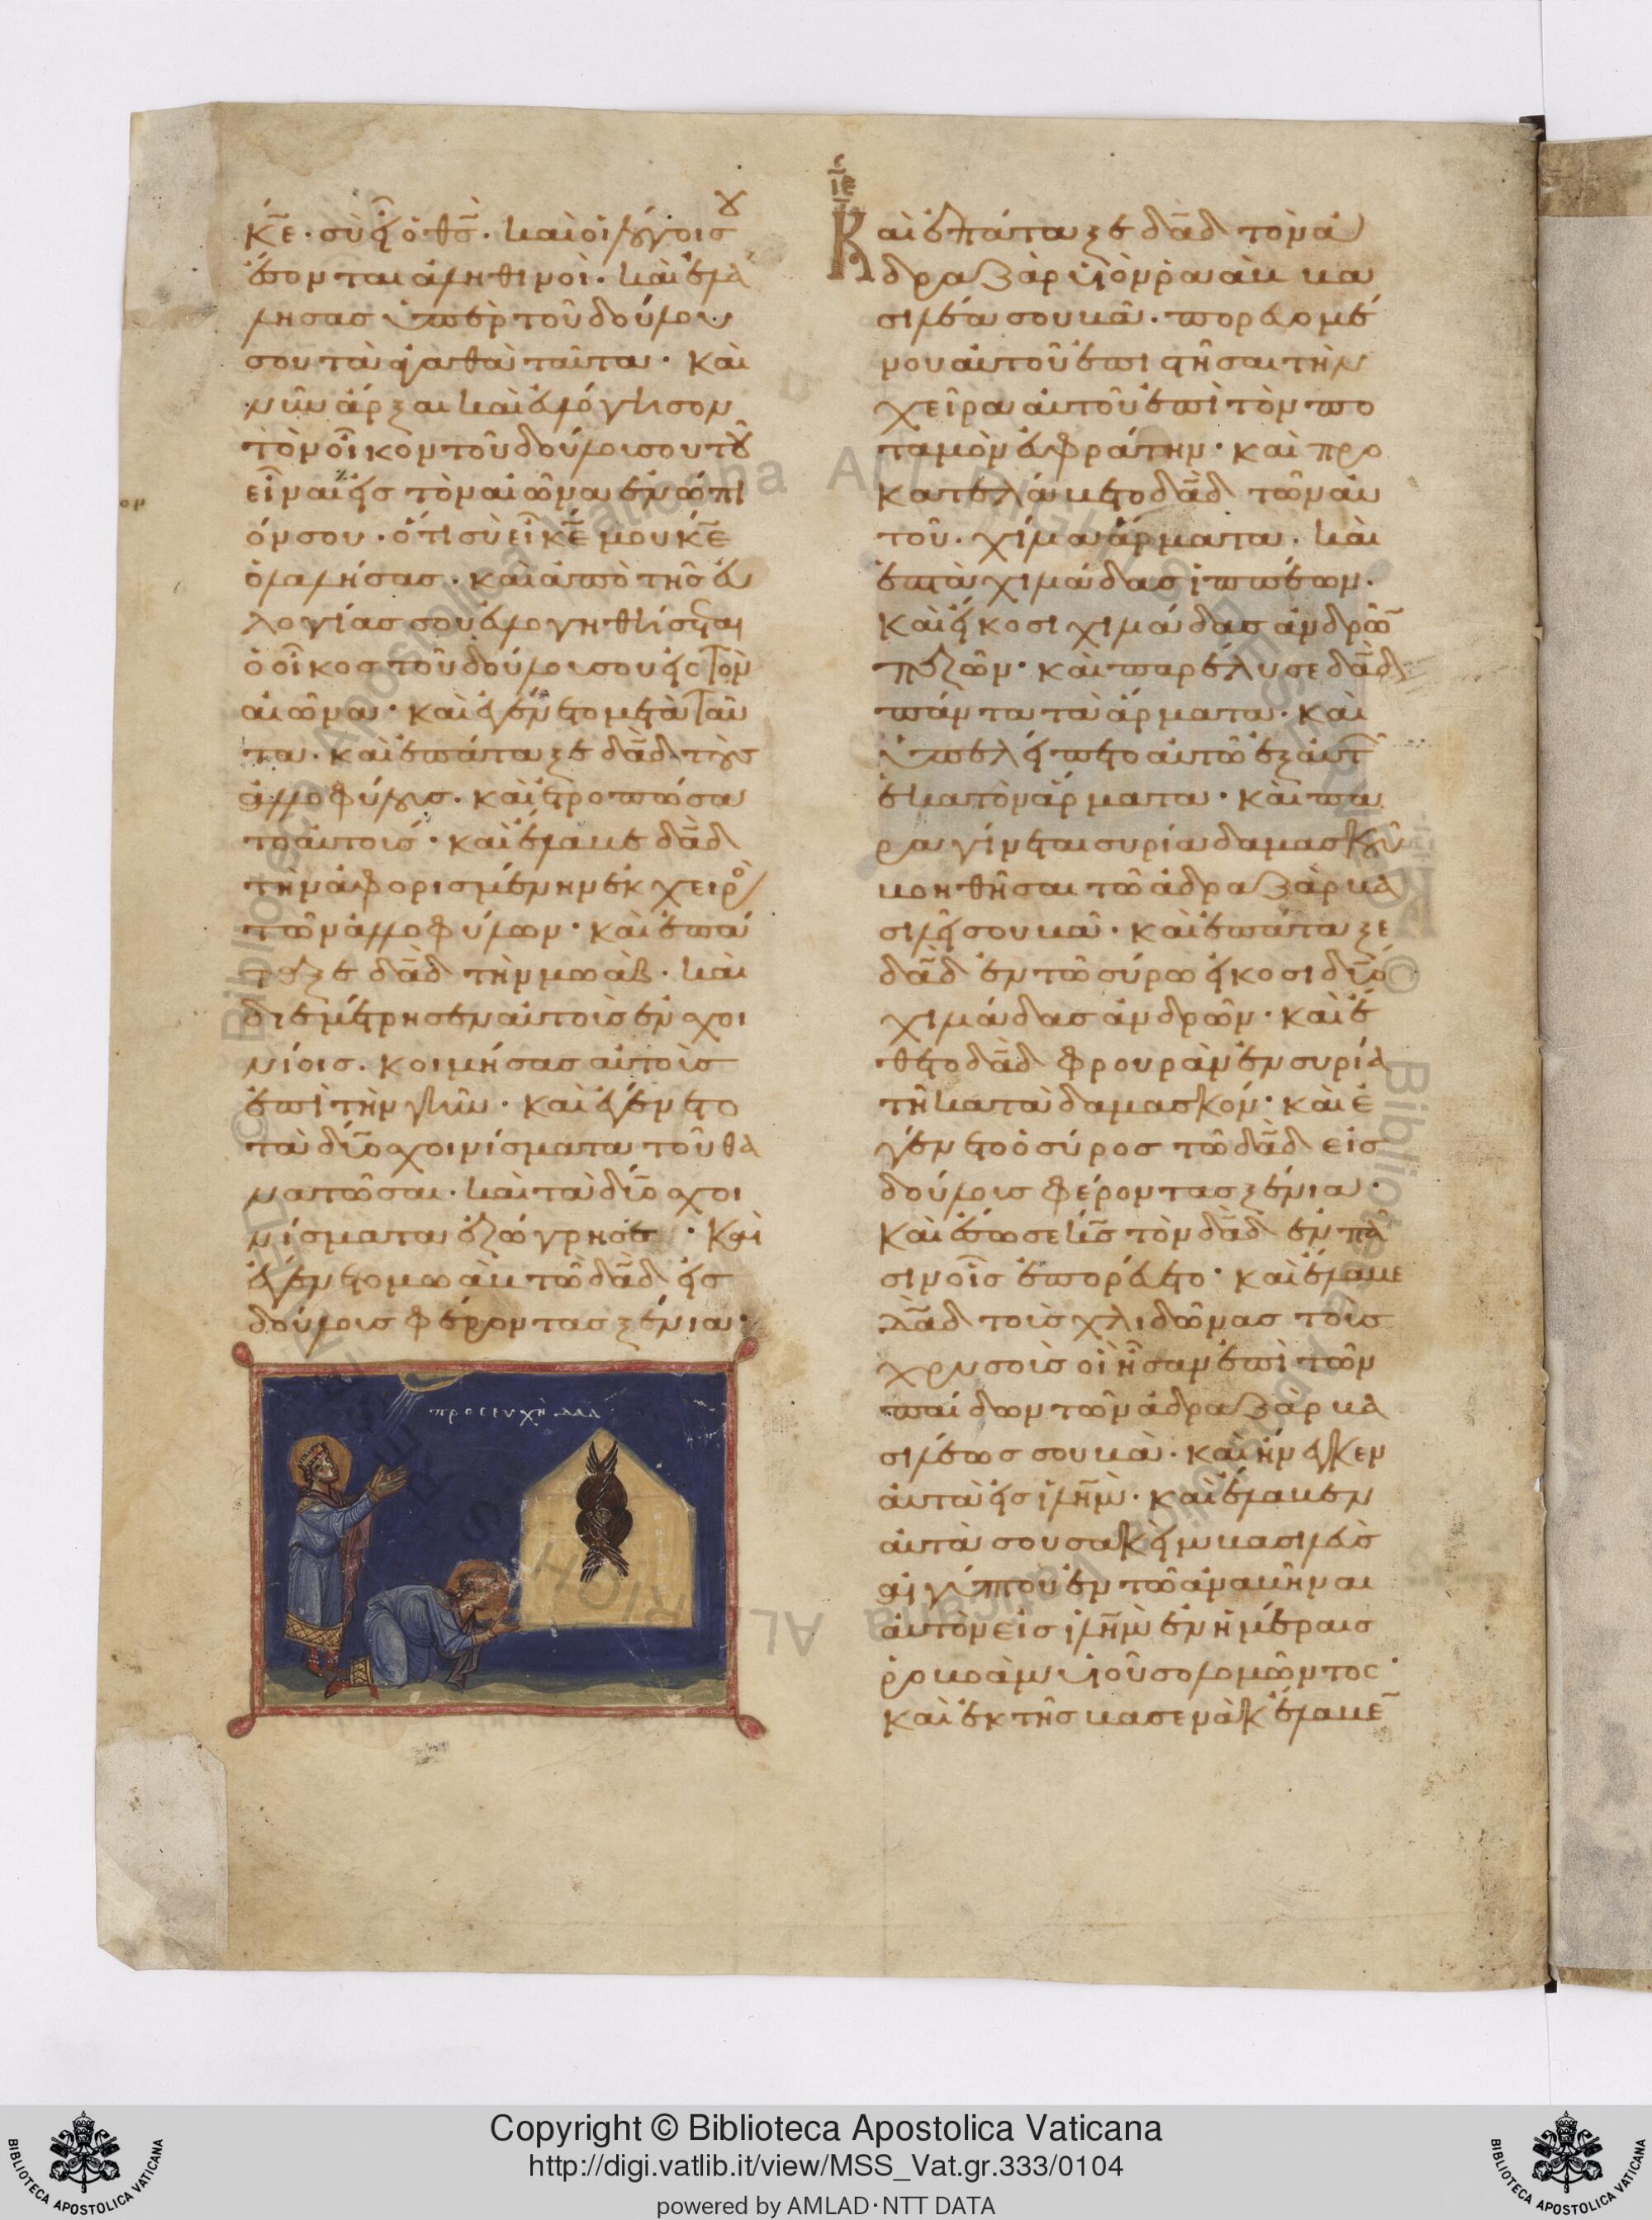 κε̅. σὺ εἶ ὁ θς̅. καὶ οἱ λόγοι σου
ἔσονται ἀληθινοί. καὶ ἐλά
λησας ὑπὲρ τοῦ δούλου
σου τὰ ἀγαθὰ ταῦτα· καὶ
νῦν ἄρξαι καὶ εὐλόγησον
τὸν οἶκον τοῦ δούλου σου τοῦ
εἶναι εἰς τὸν αἰῶνα ἐνώπι
όν σου. ὅτι σὺ εἶ κε̅ μου κε̅
ἐλάλησας. καὶ ἀπὸ τῆς εὐ
λογίας σου εὐλογηθήσεται
ὁ οἶκος τοῦ δούλου σου εἰς τὸν
αἰῶνα· καὶ ἐγένετο μετὰ ταῦ
τα. καὶ ἐπάταξε δα̅δ τοὺς
ἀλλοφύλους. καὶ ἐτροπώσα
το αὐτούς· καὶ ἔλαβε δα̅δ
τὴν ἀφορισμένην ἐκ χειρὸς
τῶν ἀλλοφύλων· καὶ ἐπά
ταξε δα̅δ τὴν μωάβ. καὶ
διεμέτρησεν αὐτοὺς ἐν σχοι
νίοις. κοιμήσας αὐτοὺς
ἐπὶ τὴν γῆν. καὶ ἐγένετο
τὰ δύο σχοινίσματα τοῦ θα
νατῶσαι. καὶ τὰ δύο σχοι
νίσματα ἐζώγρησε· καὶ
ἐγένετο μωὰβ τῶ δα̅δ εἰς
δούλους φέροντας ξένια·
προσευχὴ δαδ
ιε
Καὶ ἐπάταξε δα̅δ τὸν ἀ
δρααζὰρ υἱὸν ῥαὰβ βα
σιλέα σουβᾶ. πορευομέ
νου αὐτοῦ ἐπιστῆσαι τὴν
χεῖρα αὐτοῦ ἐπὶ τὸν πο
ταμὸν εὐφράτην· καὶ προ
κατελάβετο δα̅δ τῶν αὐ
τοῦ. χίλια ἅρματα. καὶ
ἑπτὰ χιλιάδας ἱππέων.
καὶ εἴκοσι χιλιάδας ἀνδρῶν
πεζῶν· καὶ παρέλυσε δα̅δ
πάντα τὰ ἅρματα. καὶ
ὑπελείπετο αὐτῶ ἐξ αὐτῶν
ἑκατὸν ἅρματα· καὶ πα
ραγίνεται συρία δαμασκοῦ
βοηθῆσαι τῶ ἀδρααζὰρ βα
σιλεῖ σουβᾶ. καὶ ἐπάταξε
δα̅δ ἐν τῶ σύρω εἴκοσι δύο
χιλιάδας ἀνδρῶν· καὶ ἔ
θετο δα̅δ φρουρὰν ἐν συρία
τῆ κατὰ δαμασκόν· καὶ ἐ
γένετο ὁ σύρος τῶ δα̅δ εἰς
δούλους φέροντας ξένια·
καὶ ἔσωσε κς̅ τὸν δα̅δ ἐν πᾶ
σιν οἷς ἐπορεύετο· καὶ ἔλαβε
δα̅δ τοὺς χλιδῶνας τοὺς
χρυσοὺς οἳ ἦσαν ἐπὶ τῶν
παίδων τῶν ἀδρααζὰρ βα
σιλέως σουβά. καὶ ἤνεγκεν
αὐτὰ εἰς ιλη̅μ. καὶ ἔλαβεν
αὐτὰ σουσακεὶμ βασιλεὺς
αἰγύπτου ἐν τῶ ἀναβῆναι
αὐτὸν εἰς ιλη̅μ ἐν ἡμέραις
ῥοβοὰμ υἱοῦ σολομῶντος·
καὶ ἐκ τῆς βασεβὰκ ἔλαβε
Copyright © Biblioteca Apostolica Vaticana
http://digi.vatlib.it/view/MSS_Vat.gr.333/0104
powered by AMLAD·NTT DATA
BIBLIOTECA APOSTOLICA VATICANA
BIBLIOTECA APOSTOLICA VATICANA